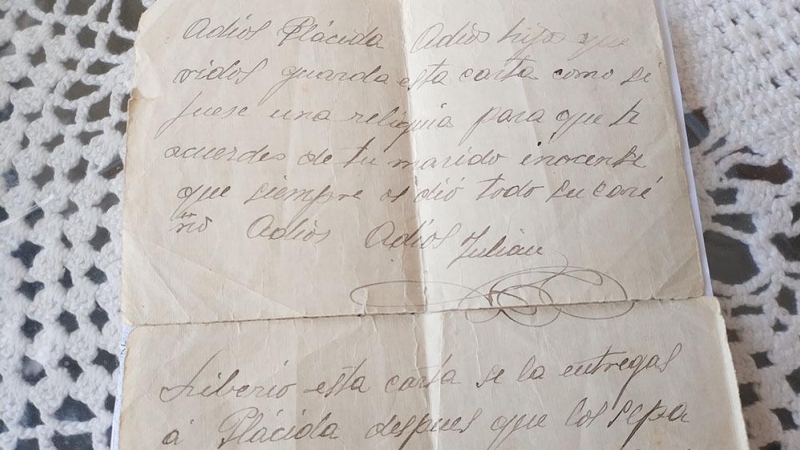 Adios Plácida Adios hijos que
ridos guarda esta carta como si
fuese una reliquia para que te
acuerdes de tu marido inocente
que siempre os dió todo su cari
ño Adios Adios Julian
Liberio esta carta se la entregas
á Plácida despues que los sepa